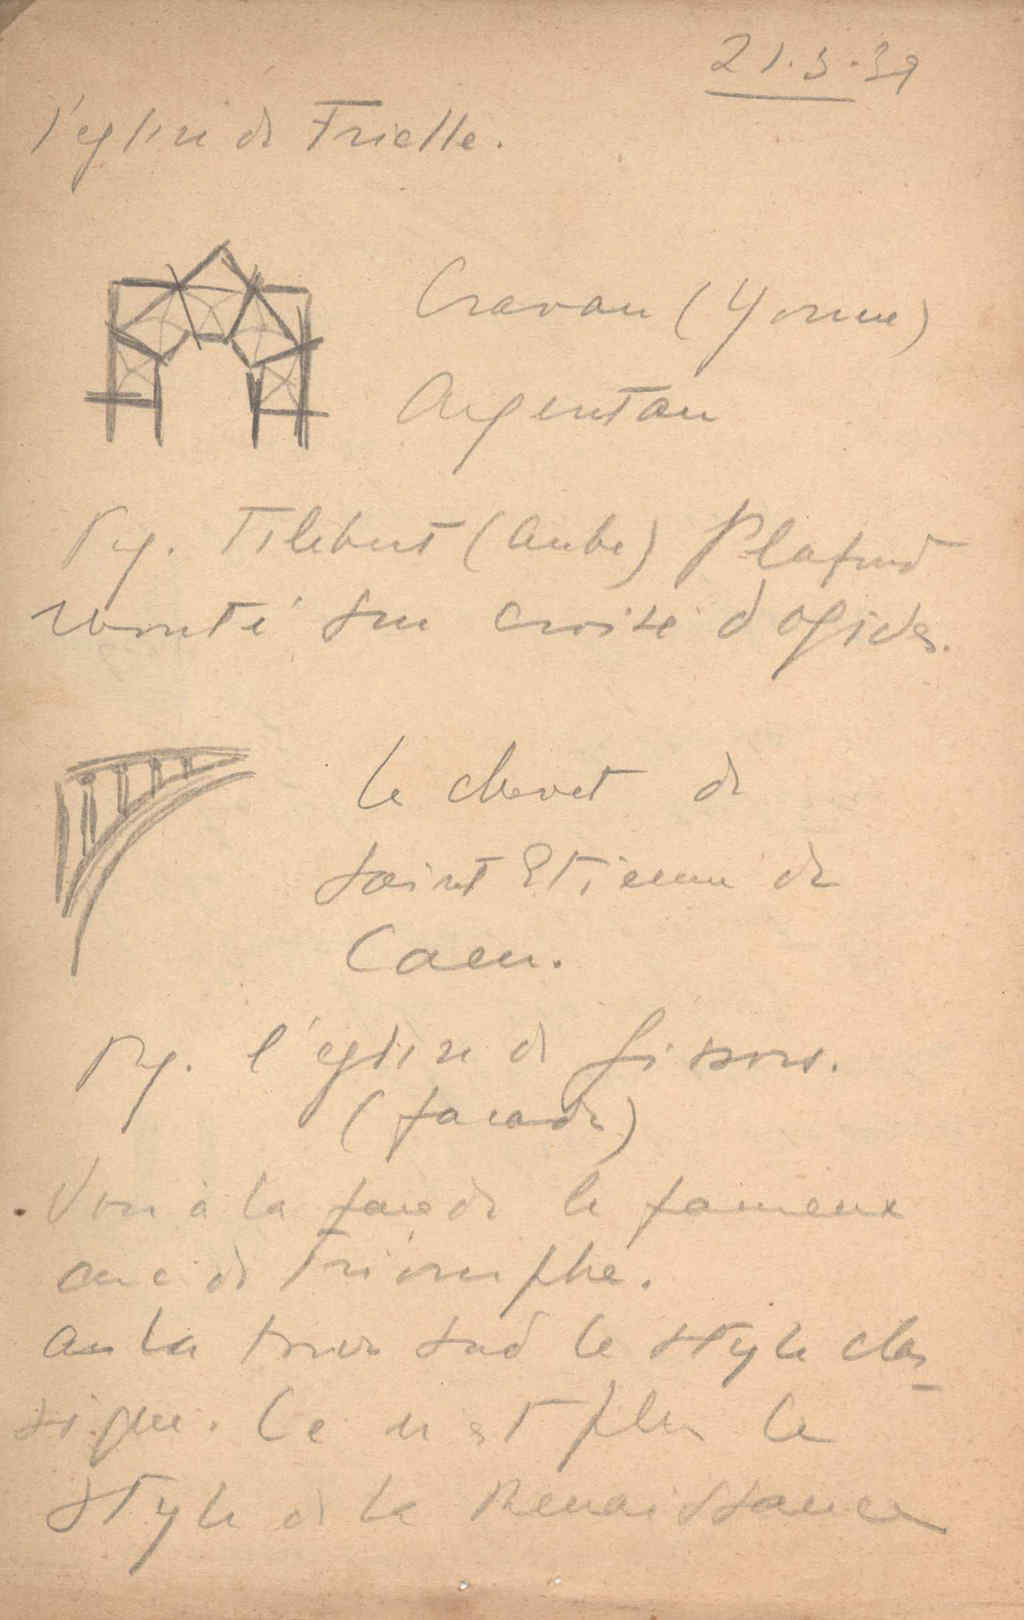 21.3.39
l'église de Trielle.
Cravan (Yonne)
Argentan
Py. Tilebert (Aube) Plafond
monté sur croisé d'ogives.
Le chevet de
Saint Etienne de
Caen.
Py. l'église de Gisors.
(façade)
Voir à la façade le fameux
arc de Triomphe.
à la tour sud le style clas-
sique. Ce n'est plus le
style de la Renaissance